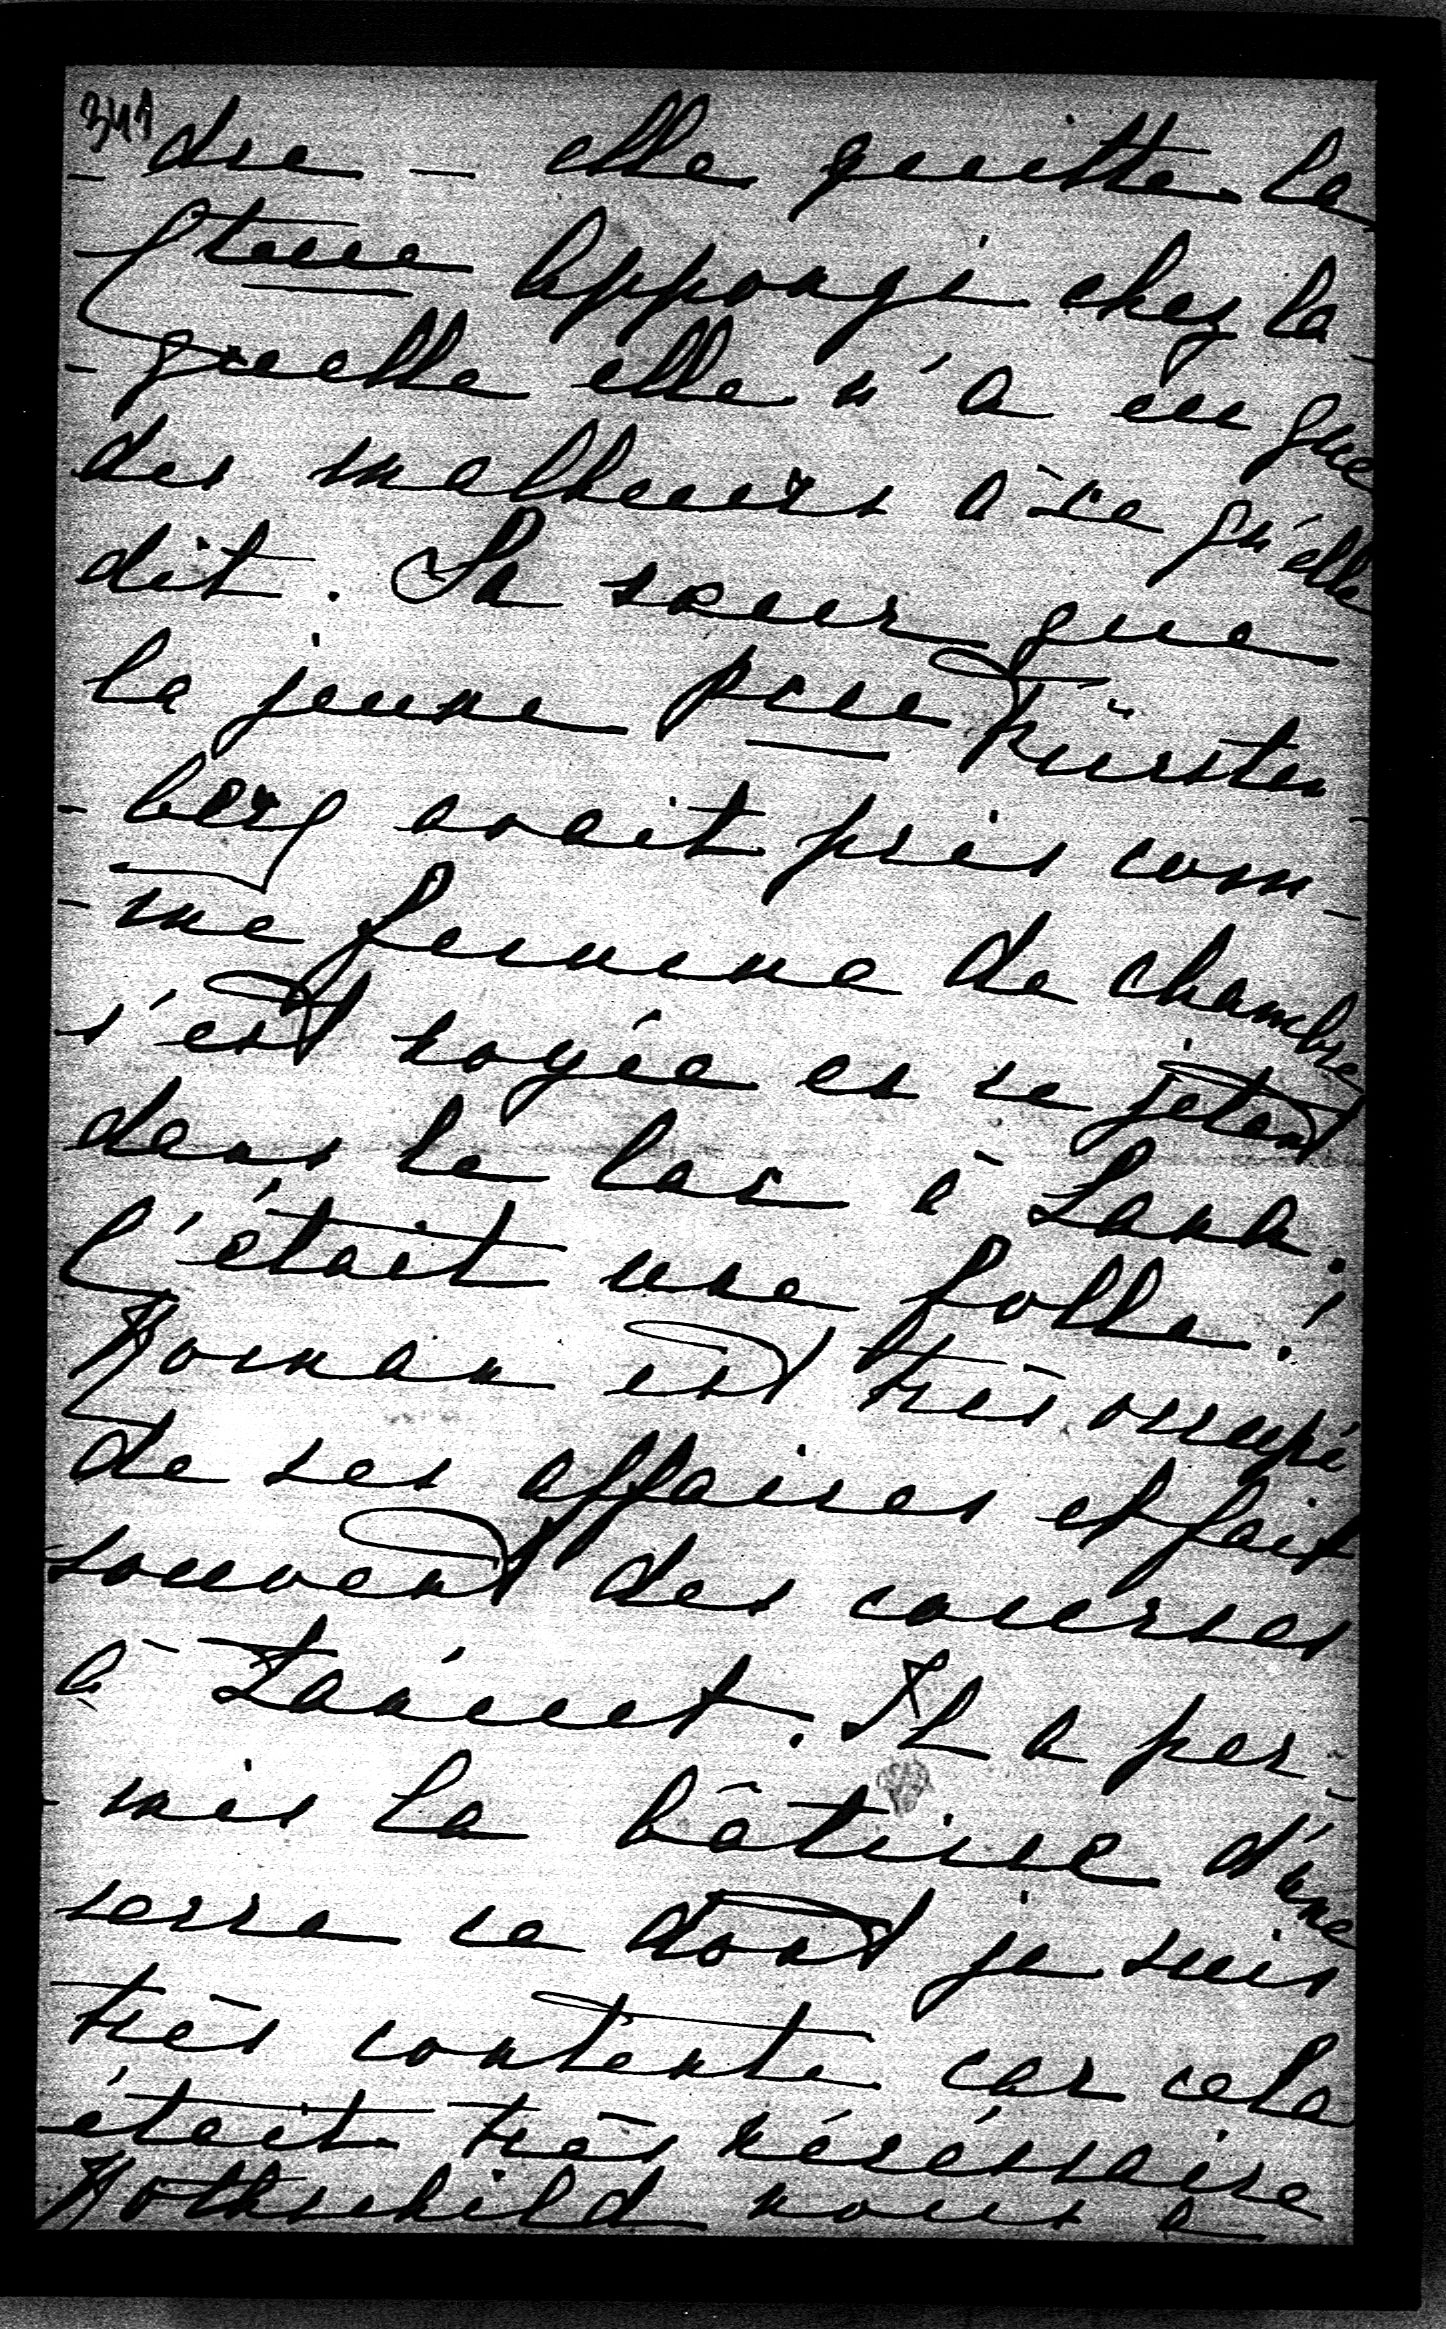 341
- dre - elle quitte la
Ctesse Appongi chez la-
- quelle elle n'a eu que
des malheurs à ce qu'elle
dit. Sa soeur que
la jeune Psse Fürsten
- berg avait pris com-
- me femme de chambre
s'est noyée es se jetant
dans le lac à Lana.
C'était une folle!
Roman est très occupé
de ses affaires et fait
souvent des courses
à Łańcut. Il a per-
- mis la bâtisse d'une
serre ce dont je suis
très contente car cela
était très nécéssaire
Rothschild nous a